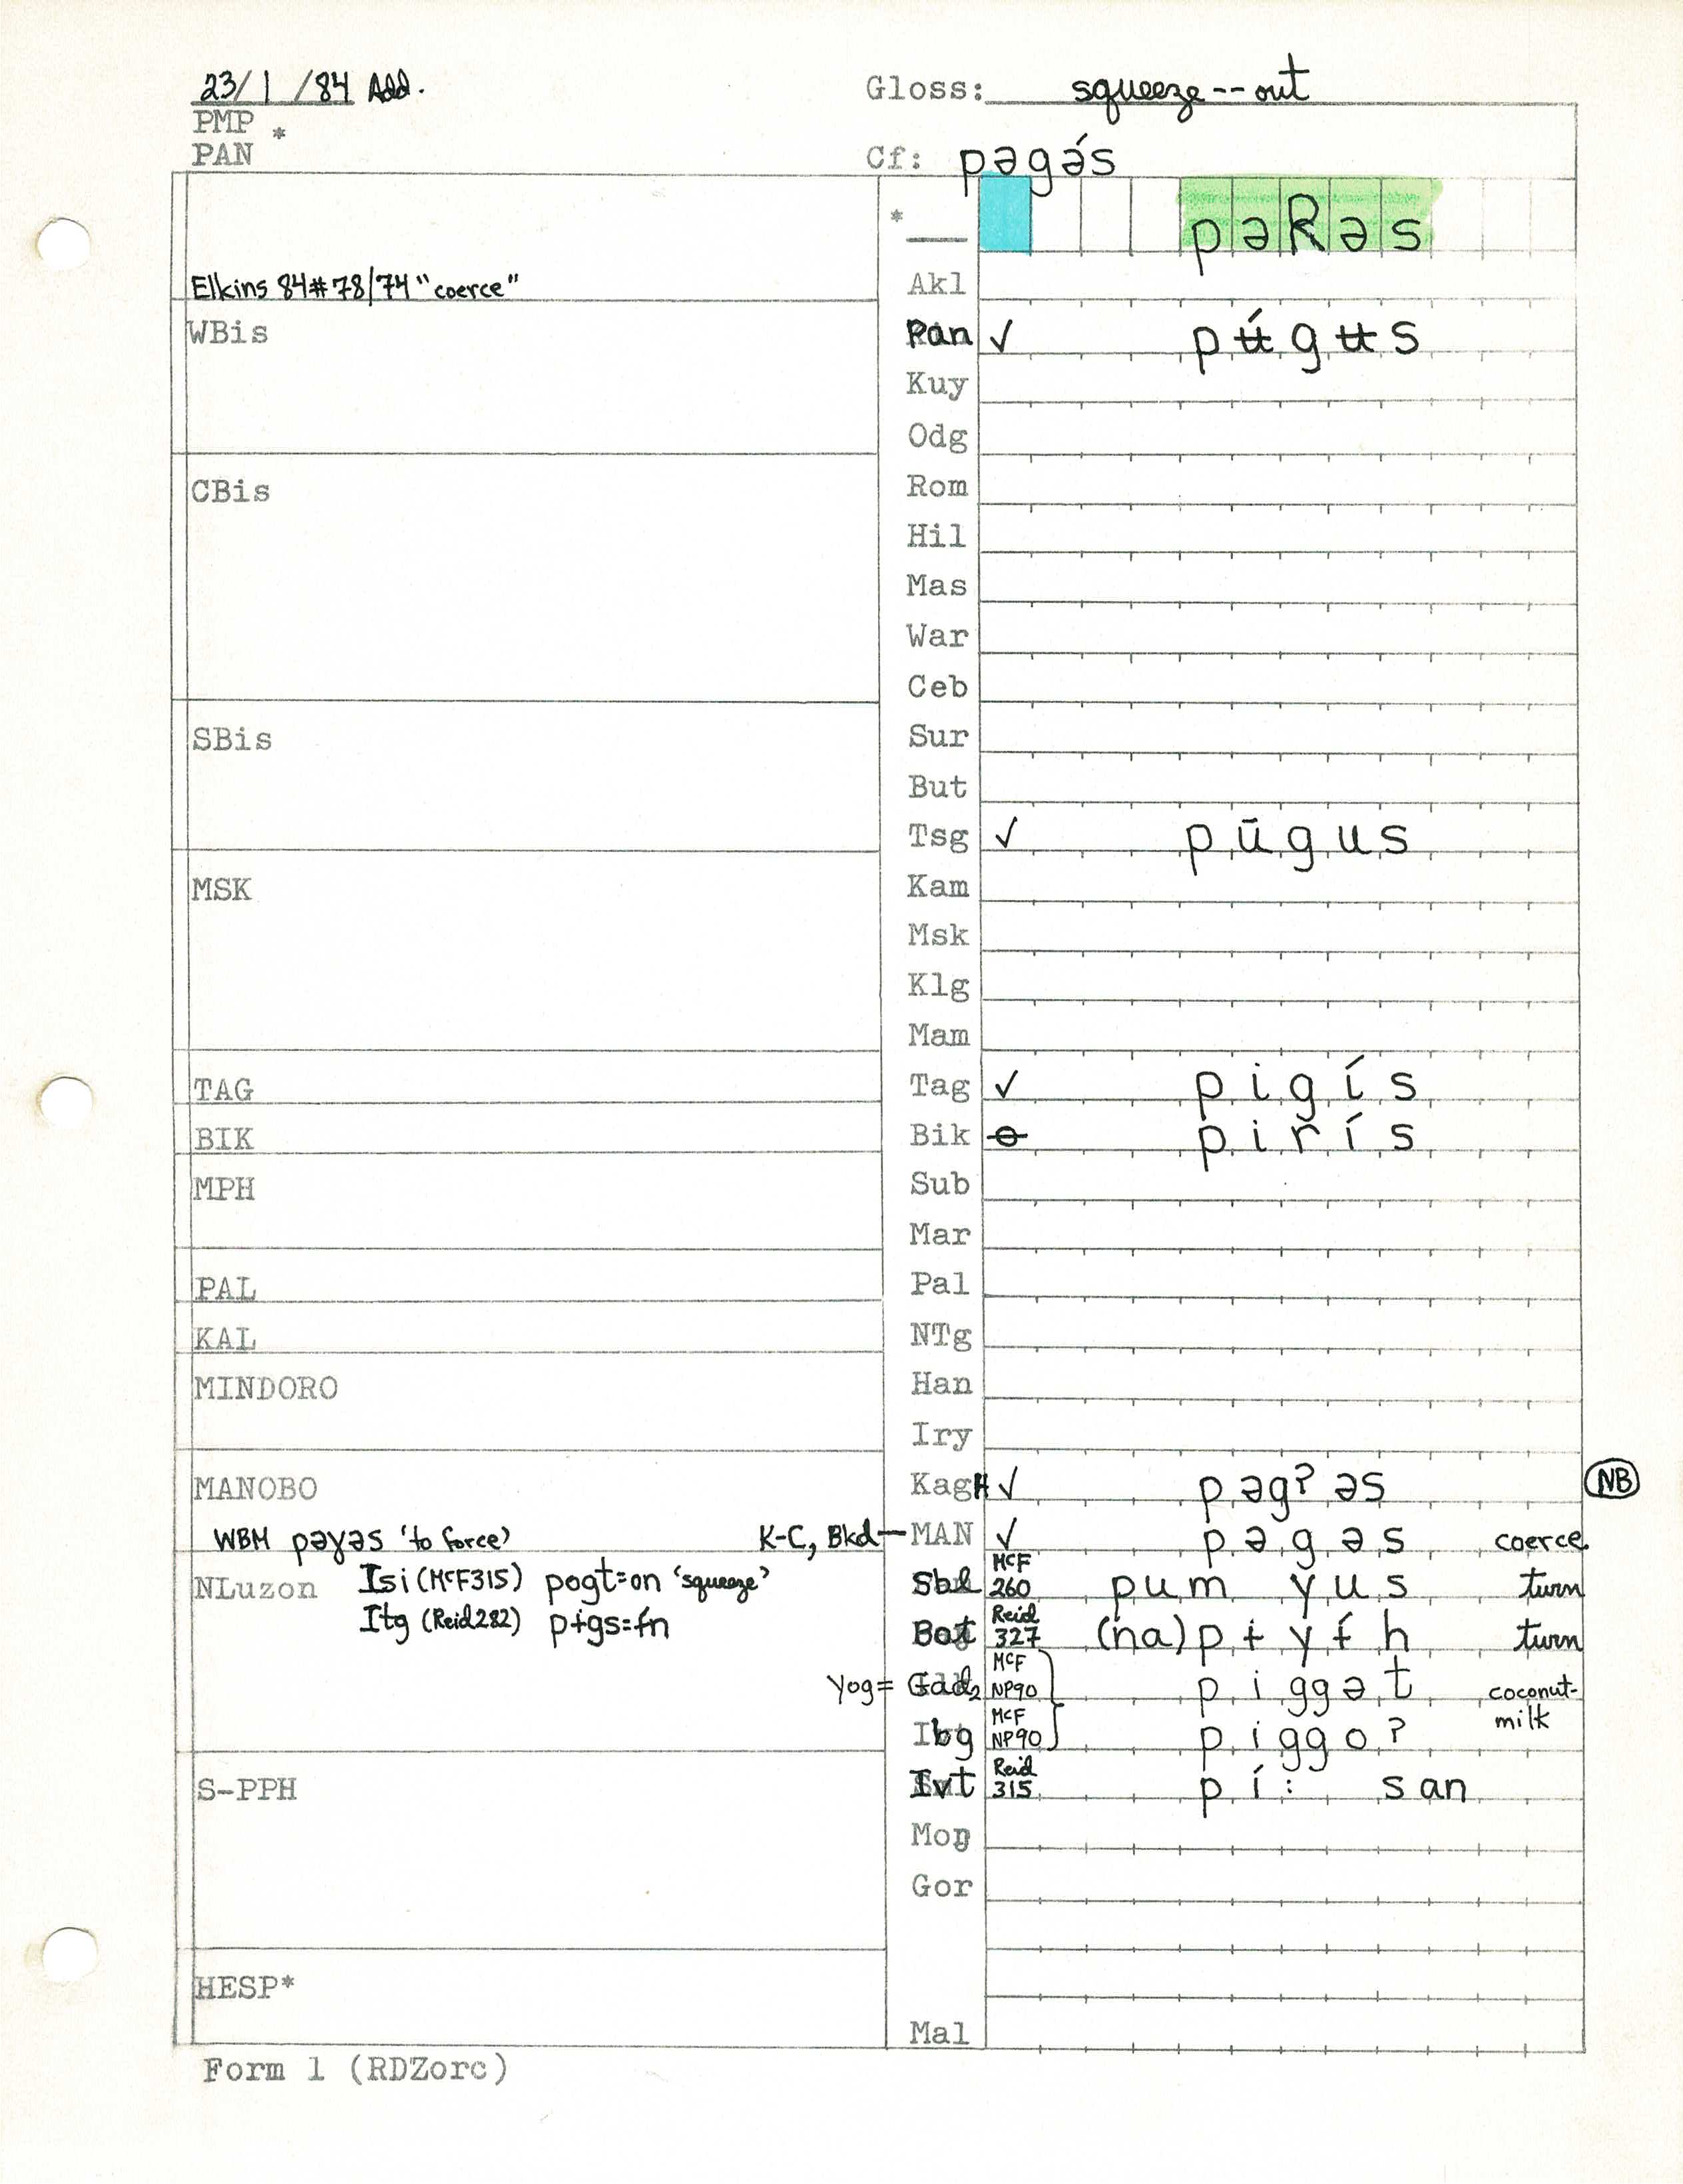 23/1/84 Add.
Gloss: squeeze--out
PMP *
PAN
Cf: pəgə́s
* pəRəs
Elkins 84#78/74 "coerce"
Akl
WBis
Pan ✓ pʉ́gʉs
Kuy
Odg
CBis
Rom
Hil
Mas
War
Ceb
SBis
Sur
But
Tsg ✓ pūgus
MSK
Kam
Msk
Klg
Mam
TAG
Tag ✓ pigís
BIK
Bik ɵ pirís
MPH
Sub
Mar
PAL
Pal
KAL
NTg
MINDORO
Han
Iry
MANOBO
KagH ✓ pəgʔəs NB
WBM pəɣəs 'to force' K-C, Bkd—MAN ✓ pəgəs coerce
NLuzon Isi (McF315) pogt=on 'squeeze'
Sbl McF 260 pum yus turn
Itg (Reid282) pɨgs=ɨ́n
Bot Reid 327 (na)pɨyɨ́h turn
Yog= Gad₂ McF NP90 piggət coconut-milk
Ibg McF NP90 piggoʔ
S-PPH
Ivt Reid 315 pí: san
Moŋ
Gor
HESP*
Mal
Form 1 (RDZorc)